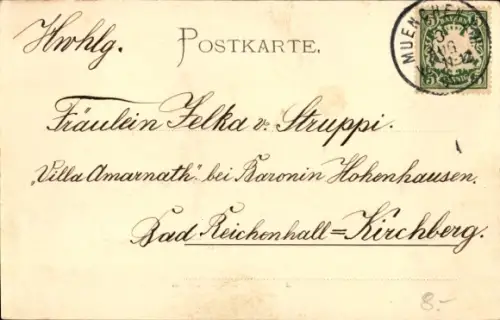 Hwhlg.
POSTKARTE.
MUENCHEN
BAYERN
Fräulein Jelka v. Struppi.
„Villa Amarnath" bei Baronin Hohenhausen.
Bad Reichenhall = Kirchberg.
8.-